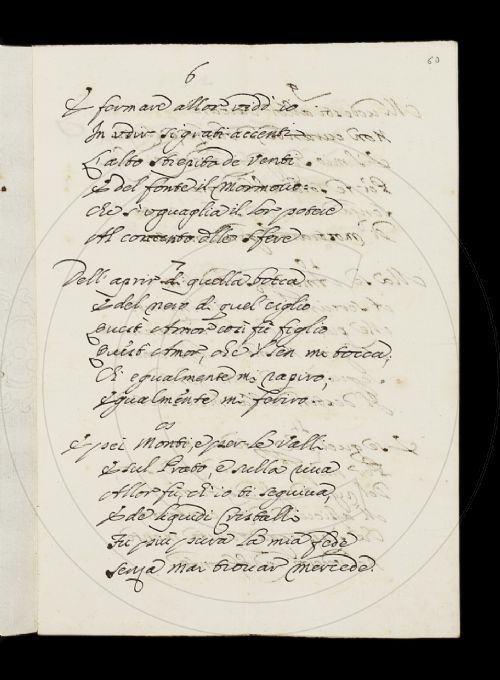 60
6
E fermare allor vidd' io
In udir sì grati accenti
L'alto strepito de Venti
E del fonte il Mormorio:
Che s'uguaglia il lor potere
Al concento delle sfere
7
Dell' aprir di quella bocca
E del nero di quel ciglio
Quest' Amor così fù figlio
Quest' Amor, che 'l sen mi tocca;
Ch' egualmente mi rapiro;
Egualmente mi feriro.
8
E pei Monti, e per le Valli
E sul Prato, e sulla riva
Allor fù, ch' io ti seguiva,
E de liquidi Cristalli
Fù più pura la mia fede
senza mai trovar mercede.